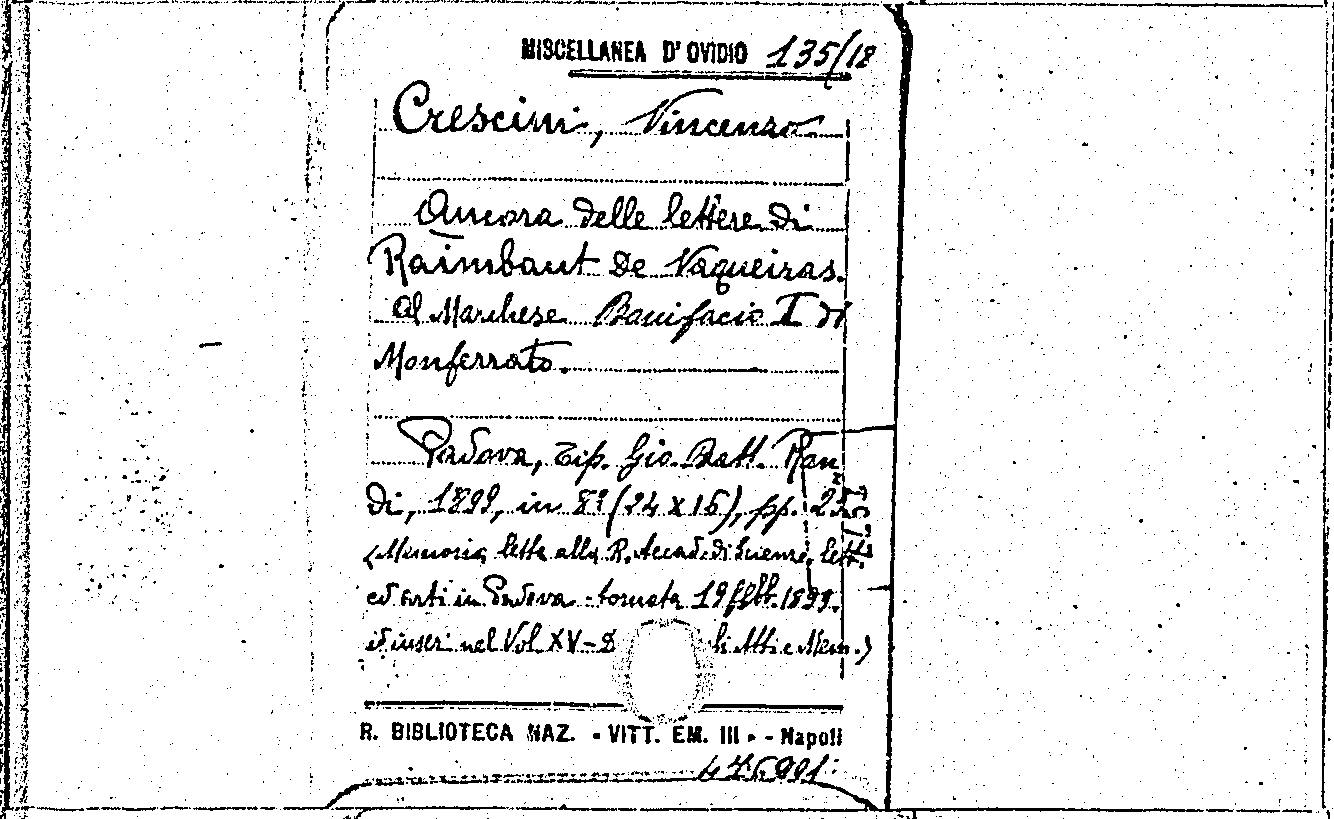 MISCELLANEA D'OVIDIO 135/18
Crescini, Vincenzo
Ancora delle lettere di
Raimbaut de Vaqueiras
al Marchese Bonifacio I di
Monferrato.
Padova, Tip. Gio. Batt. Ran
di, 1899, in 8º (24 x 16), pp. 25
(Memoria letta alla R. Accad. di Scienze, lett.
ed arti in Padova - tornata 19 febb. 1899.
inser. nel Vol. XV - D Atti e Mem.)
R. BIBLIOTECA NAZ. - VITT. EM. III - - Napoli